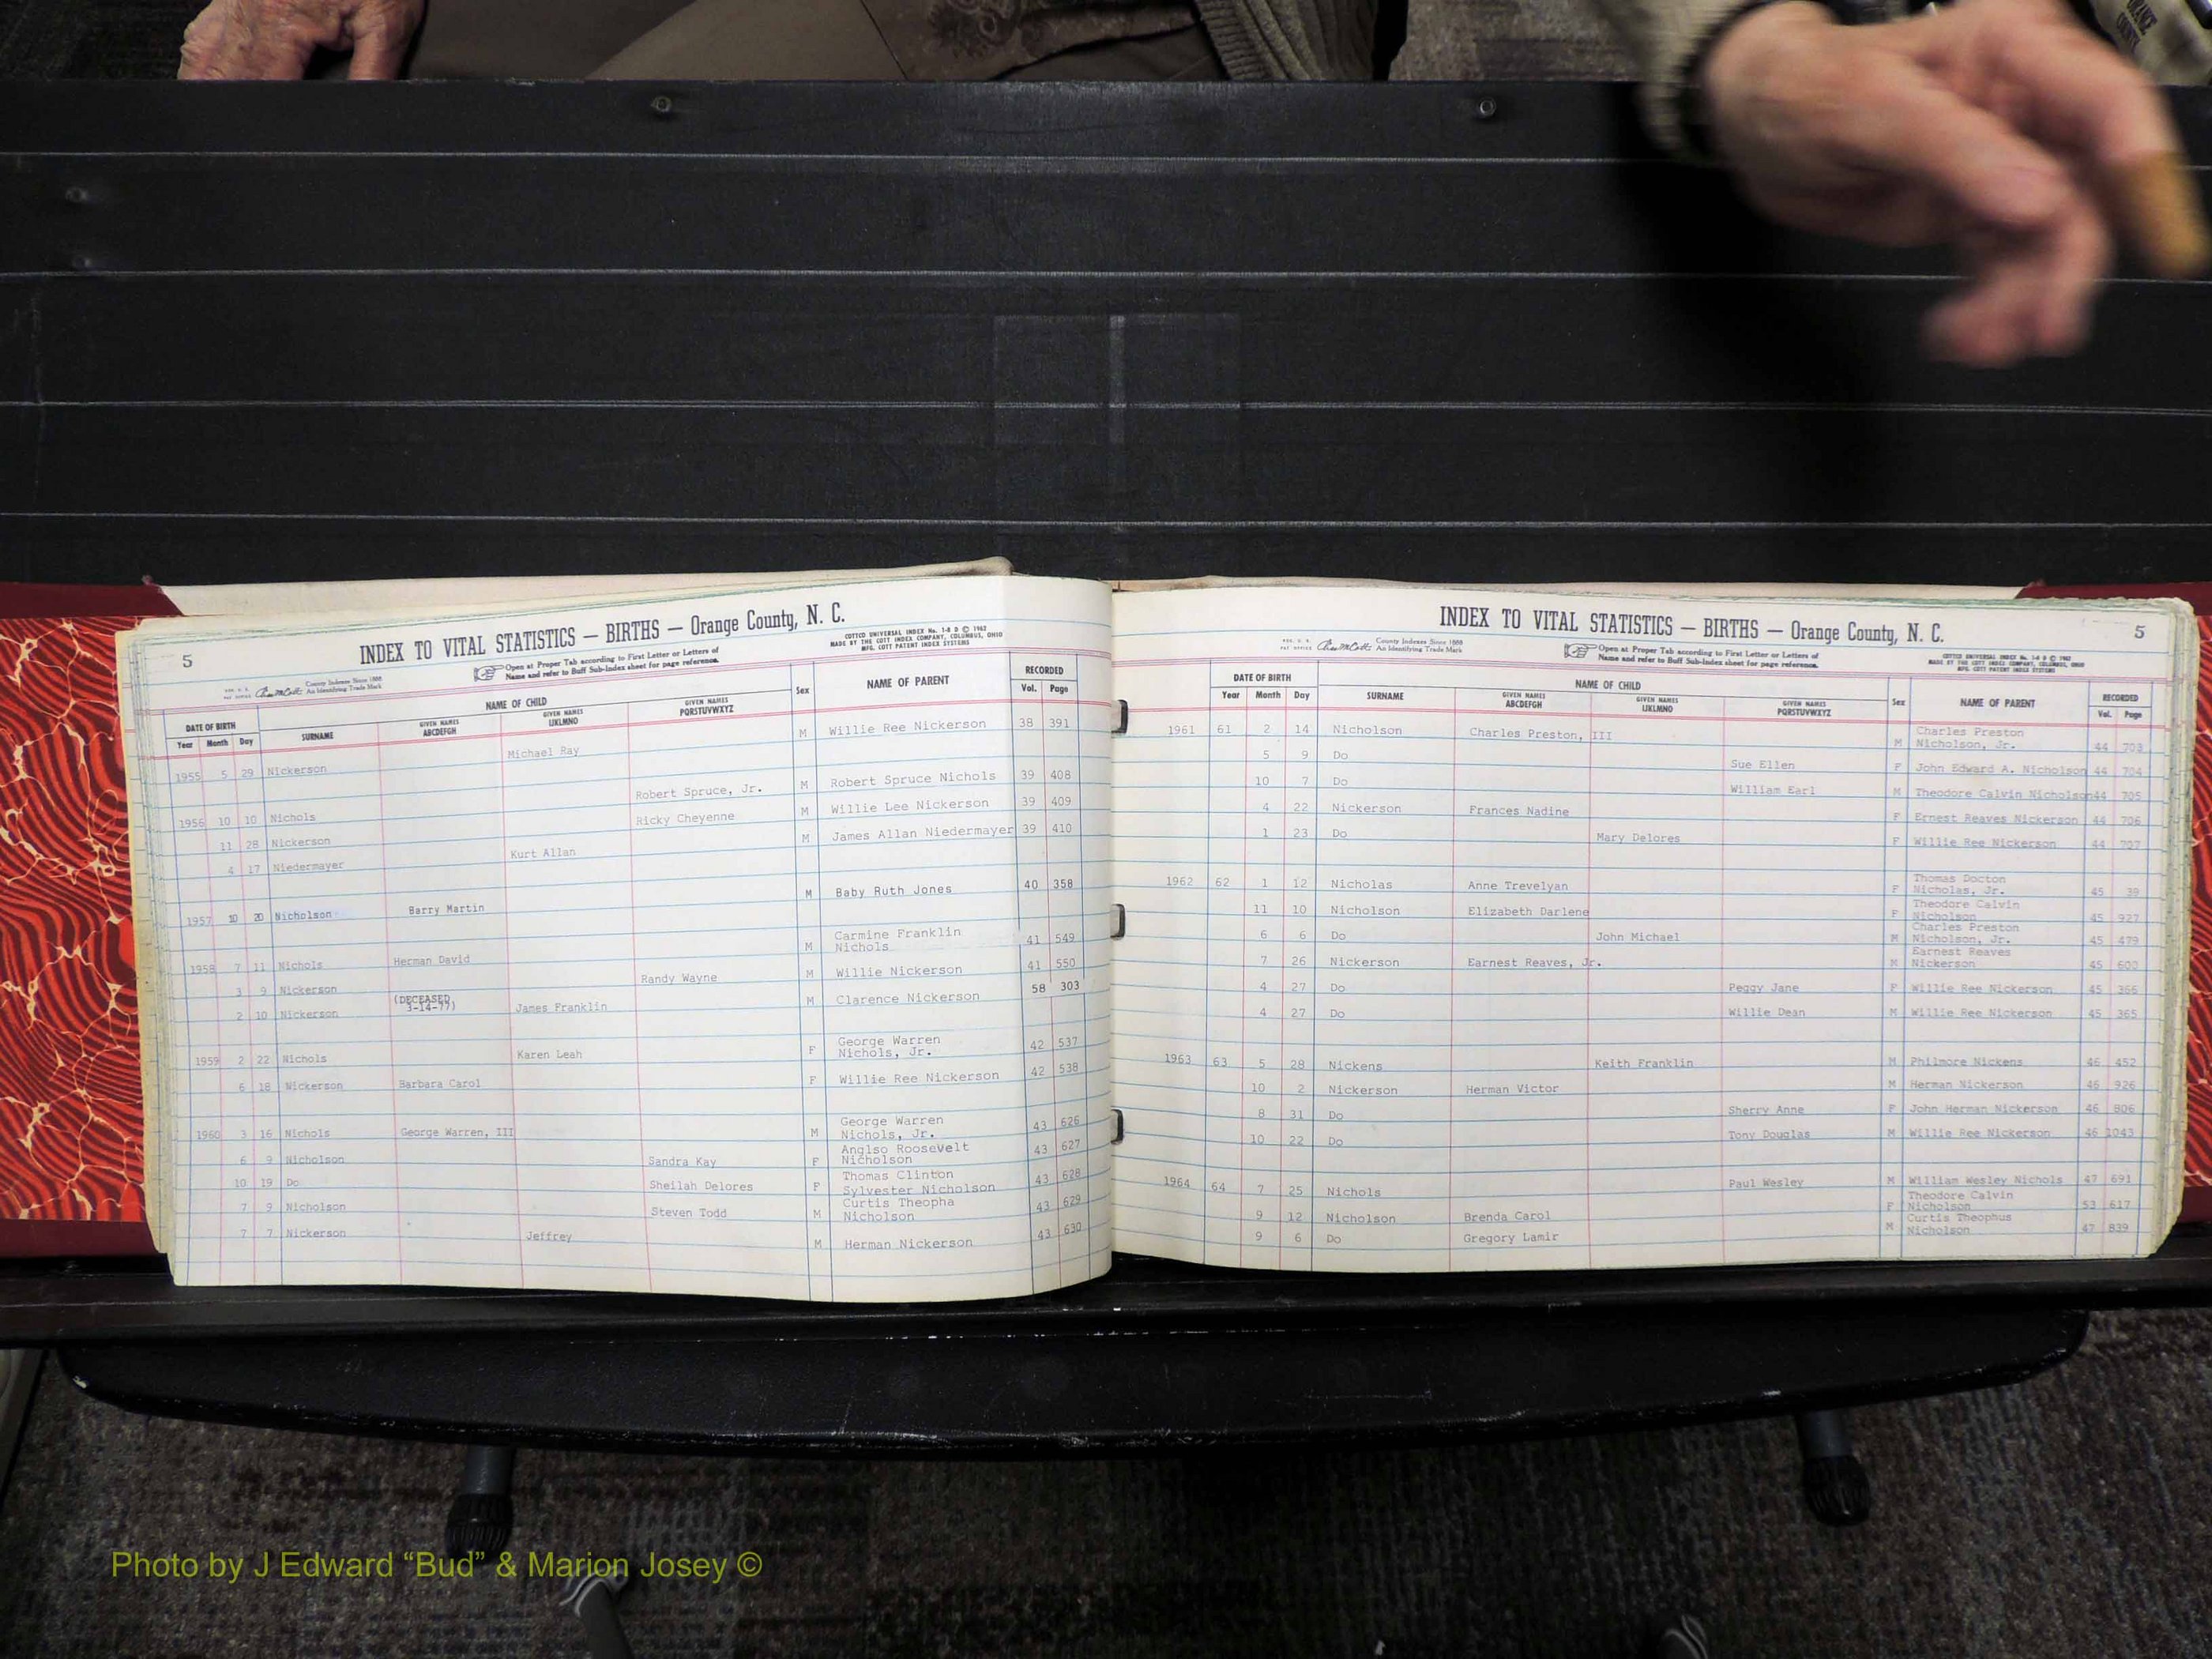 ORANGE COUNTY
5
INDEX TO VITAL STATISTICS — BIRTHS — Orange County, N. C.
COTTCO UNIVERSAL INDEX No. 1-8 D © 1962
MADE BY THE COTT INDEX COMPANY, COLUMBUS, OHIO
MFG. COTT PATENT INDEX SYSTEMS
County Indexes Since 1888
An Identifying Trade Mark
Open at Proper Tab according to First Letter or Letters of
Name and refer to Buff Sub-Index sheet for page reference.
DATE OF BIRTH NAME OF CHILD Sex NAME OF PARENT RECORDED
Year Month Day SURNAME GIVEN NAMES ABCDEFGH GIVEN NAMES IJKLMNO GIVEN NAMES PQRSTUVWXYZ Vol. Page
1955 5 29 Nickerson Michael Ray M Willie Ree Nickerson 38 391
1956 10 10 Nichols Robert Spruce, Jr. M Robert Spruce Nichols 39 408
11 28 Nickerson Ricky Cheyenne M Willie Lee Nickerson 39 409
4 17 Niedermayer Kurt Allan M James Allan Niedermayer 39 410
1957 10 20 Nicholson Barry Martin M Baby Ruth Jones 40 358
1958 7 11 Nichols Herman David M Carmine Franklin Nichols 41 549
3 9 Nickerson Randy Wayne M Willie Nickerson 41 550
2 10 Nickerson (DECEASED 3-14-77) James Franklin M Clarence Nickerson 58 303
1959 2 22 Nichols Karen Leah F George Warren Nichols, Jr. 42 537
6 18 Nickerson Barbara Carol F Willie Ree Nickerson 42 538
1960 3 16 Nichols George Warren, III M George Warren Nichols, Jr. 43 626
6 9 Nicholson Sandra Kay F Anglso Roosevelt Nicholson 43 627
10 19 Do Sheilah Delores F Thomas Clinton Sylvester Nicholson 43 628
7 9 Nicholson Steven Todd M Curtis Theopha Nicholson 43 629
7 7 Nickerson Jeffrey M Herman Nickerson 43 630
INDEX TO VITAL STATISTICS — BIRTHS — Orange County, N. C.
5
County Indexes Since 1888
An Identifying Trade Mark
Open at Proper Tab according to First Letter or Letters of
Name and refer to Buff Sub-Index sheet for page reference.
COTTCO UNIVERSAL INDEX No. 1-8 D © 1962
MADE BY THE COTT INDEX COMPANY, COLUMBUS, OHIO
MFG. COTT PATENT INDEX SYSTEMS
DATE OF BIRTH NAME OF CHILD Sex NAME OF PARENT RECORDED
Year Month Day SURNAME GIVEN NAMES ABCDEFGH GIVEN NAMES IJKLMNO GIVEN NAMES PQRSTUVWXYZ Vol. Page
1961 61 2 14 Nicholson Charles Preston, III M Charles Preston Nicholson, Jr. 44 703
5 9 Do Sue Ellen F John Edward A. Nicholson 44 704
10 7 Do William Earl M Theodore Calvin Nicholson 44 705
4 22 Nickerson Frances Nadine F Ernest Reaves Nickerson 44 706
1 23 Do Mary Delores F Willie Ree Nickerson 44 707
1962 62 1 12 Nicholas Anne Trevelyan F Thomas Docton Nicholas, Jr. 45 39
11 10 Nicholson Elizabeth Darlene F Theodore Calvin Nicholson 45 927
6 6 Do John Michael M Charles Preston Nicholson, Jr. 45 479
7 26 Nickerson Earnest Reaves, Jr. M Earnest Reaves Nickerson 45 600
4 27 Do Peggy Jane F Willie Ree Nickerson 45 366
4 27 Do Willie Dean M Willie Ree Nickerson 45 365
1963 63 5 28 Nickens Keith Franklin M Philmore Nickens 46 452
10 2 Nickerson Herman Victor M Herman Nickerson 46 926
8 31 Do Sherry Anne F John Herman Nickerson 46 806
10 22 Do Tony Douglas M Willie Ree Nickerson 46 1043
1964 64 7 25 Nichols Paul Wesley M William Wesley Nichols 47 691
9 12 Nicholson Brenda Carol F Theodore Calvin Nicholson 53 617
9 6 Do Gregory Lamir M Curtis Theophus Nicholson 47 839
Photo by J Edward “Bud” & Marion Josey ©